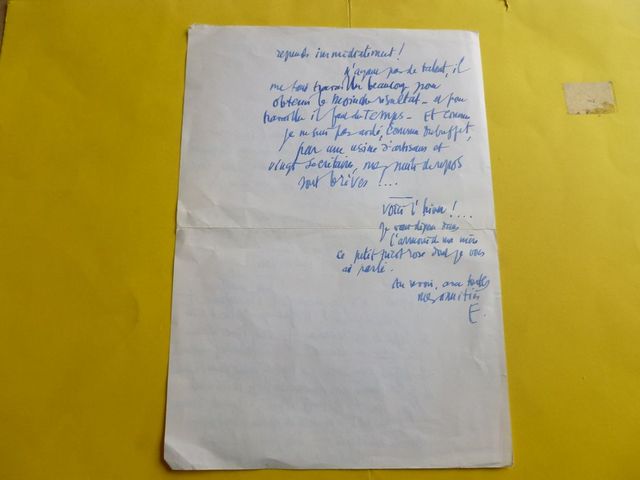 reponds immédiatement !
N'ayant pas de talent, il
me faut travailler beaucoup pour
obtenir le moindre résultat - et pour
travailler il faut du temps - Et comme
je ne suis pas aidé, comme Dubuffet,
par une usine d'artisans et
vingt secrétaires, mes nuits de repos
sont brèves !...
Voici l'hiver !...
Je vous dépose dans
l'armoire de ma mère
ce petit pivot rose dont je vous
ai parlé.
Au revoir, avec toutes
mes amitiés
E.